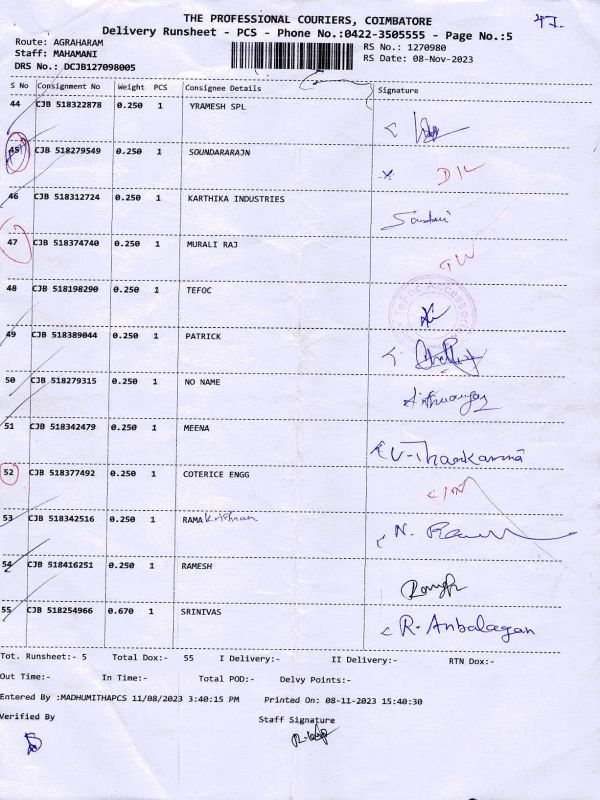 THE PROFESSIONAL COURIERS, COIMBATORE
47.
Delivery Runsheet - PCS - Phone No.:0422-3505555 - Page No.:5
Route: AGRAHARAM
RS No.: 1270980
Staff: MAHAMANI
RS Date: 08-Nov-2023
DRS No.: DCJB127098005
S No Consignment No Weight PCS Consignee Details Signature
44 CJB 518322878 0.250 1 YRAMESH SPL
45 CJB 518279549 0.250 1 SOUNDARARAJN D/L
46 CJB 518312724 0.250 1 KARTHIKA INDUSTRIES
47 CJB 518374740 0.250 1 MURALI RAJ
48 CJB 518198290 0.250 1 TEFOC
49 CJB 518389044 0.250 1 PATRICK
50 CJB 518279315 0.250 1 NO NAME
51 CJB 518342479 0.250 1 MEENA V-Thankamma
52 CJB 518377492 0.250 1 COTERICE ENGG
53 CJB 518342516 0.250 1 RAMA Krishnan
54 CJB 518416251 0.250 1 RAMESH
55 CJB 518254966 0.670 1 SRINIVAS R. Anbalagan
Tot. Runsheet:- 5 Total Dox:- 55 I Delivery:- II Delivery:- RTN Dox:-
Out Time:- In Time:- Total POD:- Delvy Points:-
Entered By :MADHUMITHAPCS 11/08/2023 3:40:15 PM Printed On: 08-11-2023 15:40:30
Verified By Staff Signature